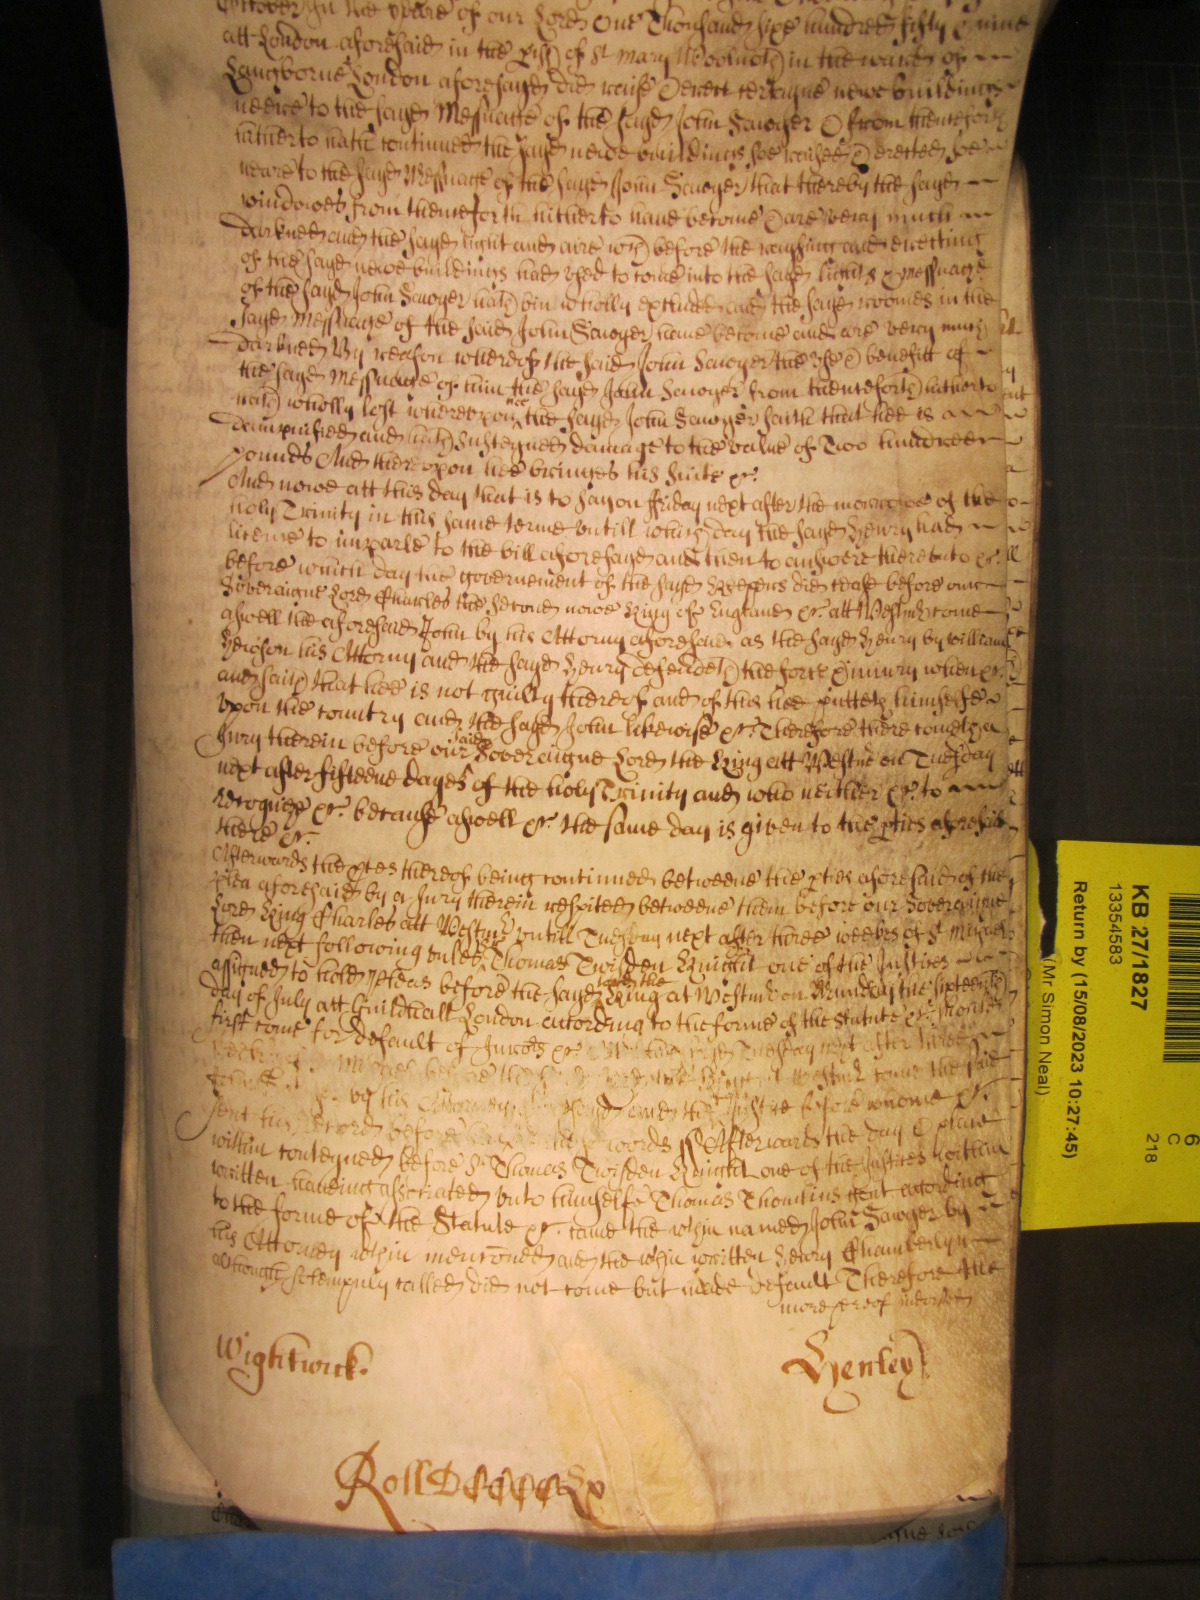 October in the yeare of our Lord One Thousand sixe hundred fifty & nine
att London aforesaid in the pish of St Mary Woolnoth in the ward of
Langborne London aforesayd did raise & erect certayne newe buildings
neere to the sayd Messuage of the sayd John Sawyer & from thenceforth
hitherto hath continued the sayd newe buildings soe raised & erected soe
neare to the sayd Messuage of the sayd John Sawyer that thereby the sayd
windowes from thenceforth hitherto have become & are very much
darkned and the sayd light and aire wch before the raysing and erecting
of the sayd newe buildings had used to come into the sayd lights & messuage
of the sayd John Sawyer hath bin wholly excluded and the sayd roomes in the
sayd Messuage of the said John Sawyer have become and are very much
darkned By reason whereof the said John Sawyer the use & benefitt of
the sayd Messuage of him the sayd John Sawyer from thenceforth hitherto
hath wholly lost whereupon the sayd John Sawyer saith that hee is
dampnified and hath susteyned damage to the value of Two hundred
pounds And thereupon hee bringes his suite &c.
And nowe att this day that is to say on ffriday next after the morrowe of the
holy Trinity in this same terme untill which day the sayd Henry had
licence to imparle to the bill aforesayd and then to answere thereunto &c.
before which day the governement of the sayd Keepers did cease before our
Soveraigne Lord Charles the Second nowe King of England &c. att Westmr come
aswell the aforesaid John by his Attorny aforesaid as the sayd Henry by William
his Attorny and the sayd Henry defendeth the force & iniury when &c.
and saith that hee is not guilty thereof and of this hee putteth himselfe
upon the country and the sayd John likewise &c. Therefore there come a
Jury therein before our said Soveraigne Lord the King att Westmr on Tuesday
next after fifteene dayes of the holy Trinity and who neither &c. to
recognize &c. because aswell &c. the same day is given to the pties aforesaid
there &c.
Afterwards the pces thereof being continued betweene the pties aforesaid of the
plea aforesaid by a Jury therein respited betweene them before our Soveraigne
Lord King Charles att Westmr untill Tuesday next after three weekes of St Michael
then next following unles Thomas Twisden Knight one of the Justices
assigned to hold pleas before the sayd King at Westmr on Munday the sixteenth
day of July att Guildhall London according to the forme of the Statute &c.
first come for default of Jurors &c. Tuesday next after three
before Westmr come the said
by his Attorney and the before whome &c.
sent his Record before words Afterwards the day & place
within conteyned before Sr Thomas Twisden Knight one of the Justices within
written haveing associated unto himselfe Thomas Thomlins gent according
to the forme of the Statute &c. came the wthin named John Sawyer by
his Attorney wthin menconed and the wthin written Henry Chamberlyn
although solempnly called did not come but made default Therefore the
more hereof
Wightwick. Henley
Roll DCCCCLx
KB 27/1827
13354583
Return by (15/08/2023 10:27:45)
(Mr Simon Neal)
6
C
218